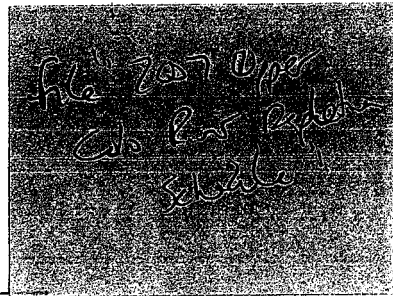 file "2007 Upper
Colo Rvr Depletion
Schedule"